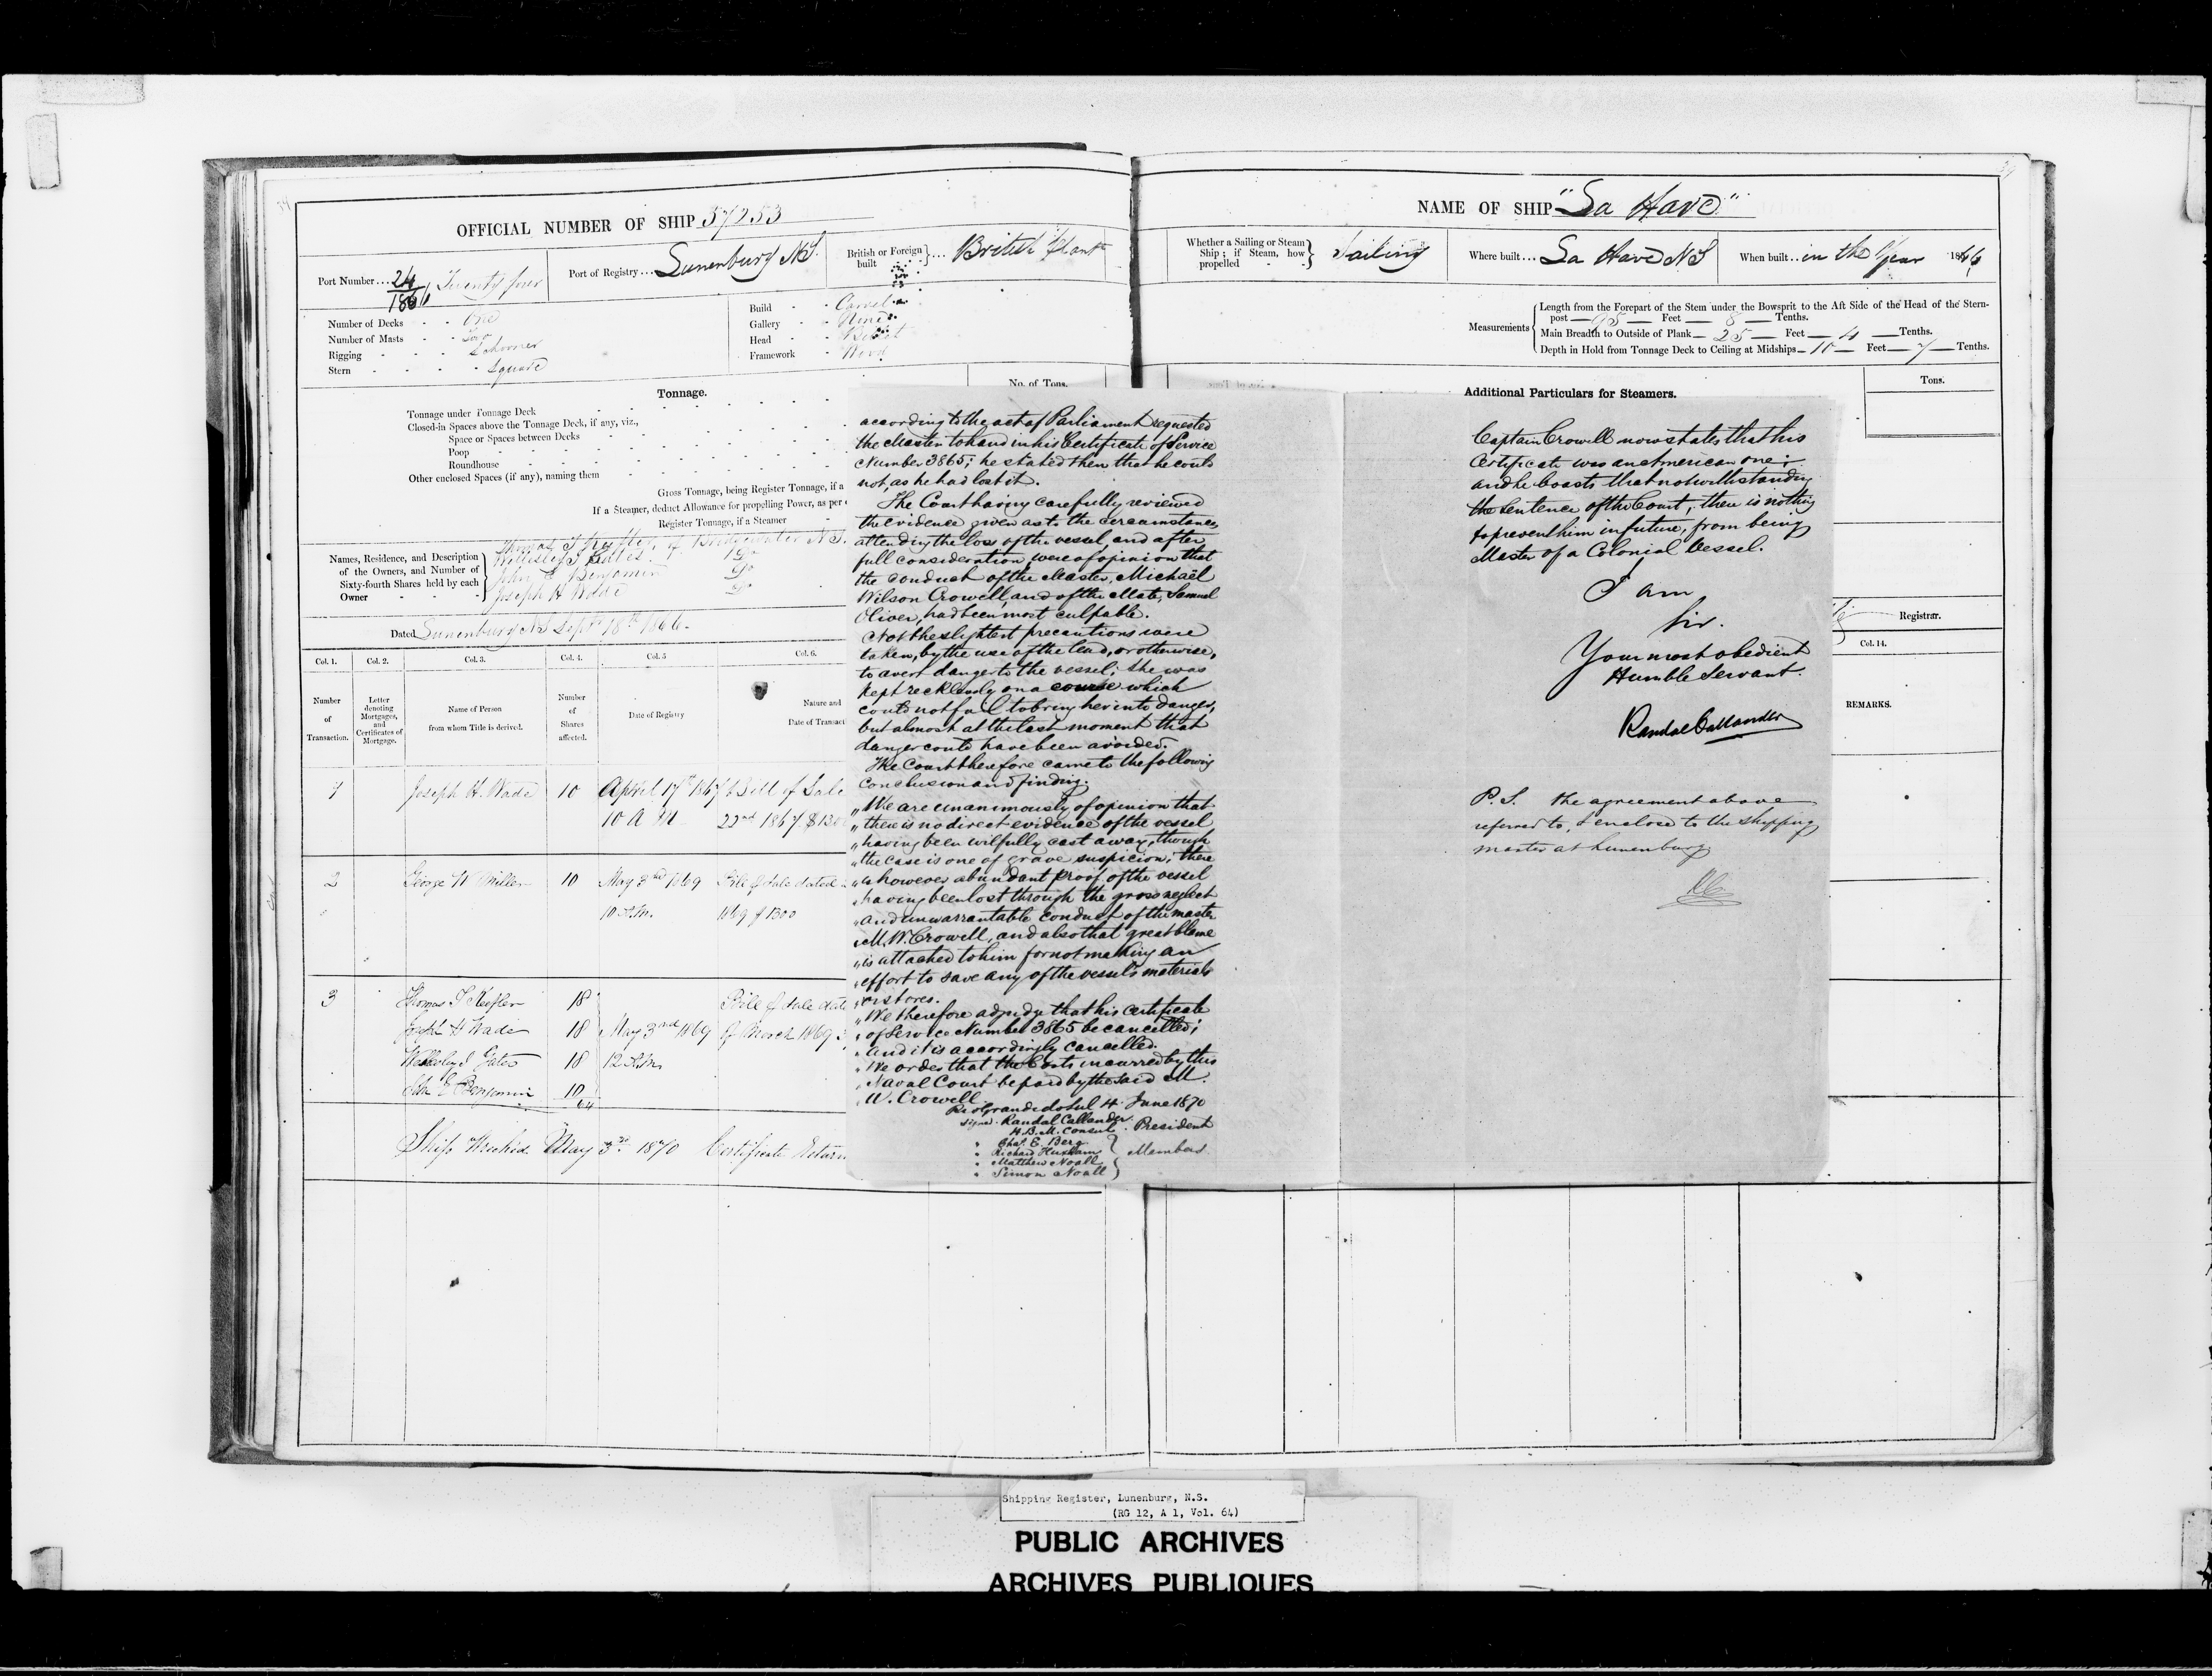 OFFICIAL NUMBER OF SHIP 57253
Port Number... 24/1866 Twenty four
Port of Registry... Lunenburg N.S.
British or Foreign built } ... British Plant
Number of Decks - - One
Number of Masts - - Two
Rigging - - - Schooner
Stern - - - - Square
Build - - Carvel
Gallery - - None
Head - - Billet
Framework - Wood
Tonnage.
No. of Tons.
Tonnage under Tonnage Deck
Closed-in Spaces above the Tonnage Deck, if any, viz.,
Space or Spaces between Decks
Poop
Roundhouse
Other enclosed Spaces (if any), naming them
Gross Tonnage, being Register Tonnage, if a
If a Steamer, deduct Allowance for propelling Power, as per
Register Tonnage, if a Steamer
Names, Residence, and Description
of the Owners, and Number of
Sixty-fourth Shares held by each
Owner
Thomas of Bridgewater N.S.
John E Benjamin Do
Joseph H Wade Do
Dated Lunenburg NS Sept 18th 1866.
Col. 1. Col. 2. Col. 3. Col. 4. Col. 5 Col. 6.
Number of Transaction.
Letter denoting Mortgages, and Certificates of Mortgage.
Name of Person from whom Title is derived.
Number of Shares affected.
Date of Registry
Nature and
Date of Transact
1 Joseph H. Wade 10 April 17th 1867 Bill of Sale
10 A M 22nd 1867 $130
2 George W Miller 10 May 3rd 1869 Bill of Sale dated
10 A.M. 1869 $1300
3 Thomas 18 Bill of Sale date
Joseph H Wade 18 May 3rd 1869 of March 1869
Gates 18 12 A.M.
John E Benjamin 10
64
Ship Wrecked May 3rd 1870 Certificate Return
NAME OF SHIP "La Have"
Whether a Sailing or Steam
Ship; if Steam, how
propelled } Sailing
Where built... La Have NS
When built.. in the Year 1866
Measurements
Length from the Forepart of the Stem under the Bowsprit to the Aft Side of the Head of the Stern-
post — 95 — Feet — 8 — Tenths.
Main Breadth to Outside of Plank — 25 — Feet — 4 — Tenths.
Depth in Hold from Tonnage Deck to Ceiling at Midships — 10 — Feet — 7 — Tenths.
Additional Particulars for Steamers.
Tons.
Registrar.
Col. 14.
REMARKS.
according to the act of Parliament requested
the Master to hand in his Certificate of Service
Number 3865; he stated then that he could
not, as he had lost it.
The Court having carefully reviewed
the evidence given as to the circumstances
attending the loss of the vessel and after
full consideration, were of opinion that
the conduct of the Master, Michaël
Wilson Crowell, and of the Mate, Samuel
Oliver, had been most culpable.
Not the slightest precautions were
taken, by the use of the lead, or otherwise,
to avert danger to the vessel; she was
kept recklessly on a course which
could not fail to bring her into danger,
but almost at the last moment that
danger could have been avoided.
The Court therefore came to the following
conclusion and finding.
"We are unanimously of opinion that
"there is no direct evidence of the vessel
"having been wilfully cast away, though
"the case is one of grave suspicion; there
"is however abundant proof of the vessel
"having been lost through the gross neglect
"and unwarrantable conduct of the master
"M. W. Crowell, and also that great blame
"is attached to him for not making an
"effort to save any of the vessel's materials
"or stores.
"We therefore adjudge that his Certificate
"of Service Number 3865 be cancelled;
"and it is accordingly cancelled.
"We order that the Costs incurred by this
"Naval Court be paid by the said M.
"W. Crowell.
Rio Grande do Sul 4 June 1870
signed. Randal Callander.
H.B.M. Consul. President
" Chas. E. Berg
" Richard Huxham
" Matthew Noall } Members.
" Simon Noall
Captain Crowell now states that his
Certificate was an American one;
and he boasts that notwithstanding
the sentence of the Court, there is nothing
to prevent him in future, from being
Master of a Colonial Vessel.
I am
Sir.
Your most obedient
Humble Servant.
Randal Callander
P.S. the agreement above
referred to, I enclose to the shipping
master at Lunenburg
RC
Shipping Register, Lunenburg, N.S.
(RG 12, A 1, Vol. 64)
PUBLIC ARCHIVES
ARCHIVES PUBLIQUES